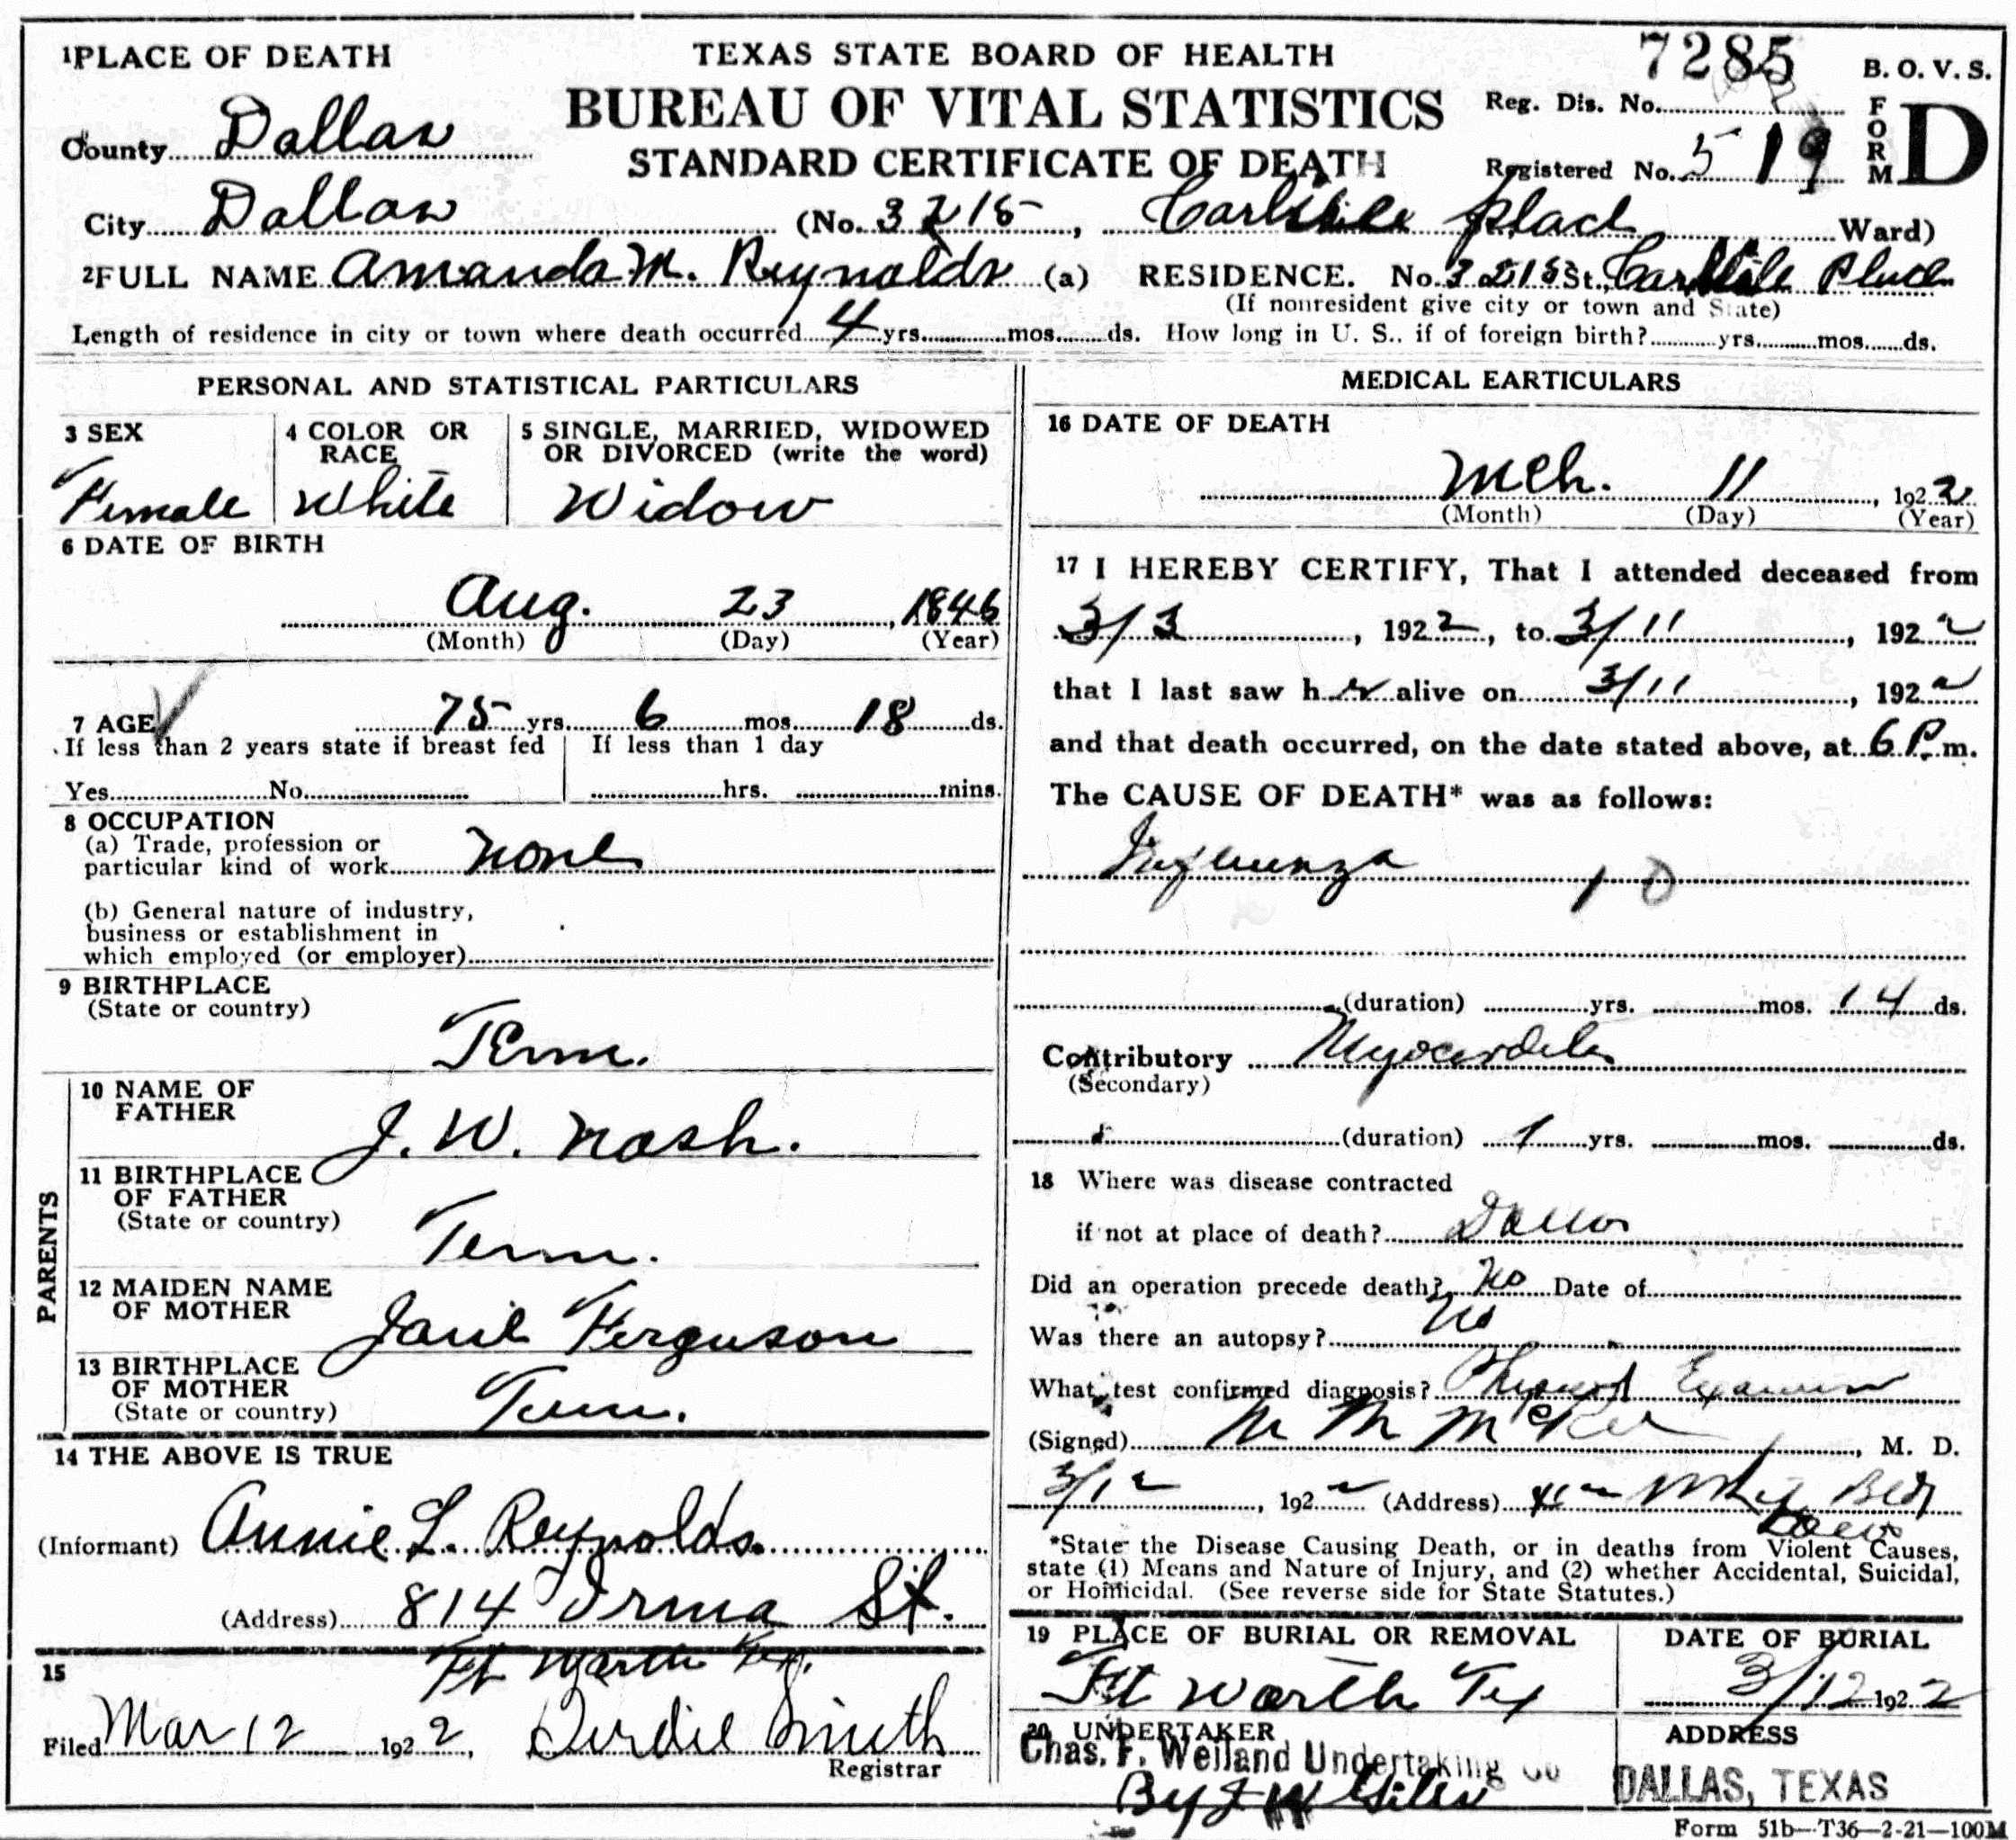 1 PLACE OF DEATH
TEXAS STATE BOARD OF HEALTH
7285
B. O. V. S.
BUREAU OF VITAL STATISTICS
Reg. Dis. No.
FORM D
County Dallas
STANDARD CERTIFICATE OF DEATH
Registered No. 519
City Dallas (No. 3215, Carlisle place Ward)
2 FULL NAME Amanda M. Reynolds (a) RESIDENCE. No. 3215 St., Carlisle Place
(If nonresident give city or town and State)
Length of residence in city or town where death occurred 4 yrs. mos. ds. How long in U. S., if of foreign birth? yrs. mos. ds.
PERSONAL AND STATISTICAL PARTICULARS
3 SEX
Female
4 COLOR OR RACE
White
5 SINGLE, MARRIED, WIDOWED
OR DIVORCED (write the word)
Widow
6 DATE OF BIRTH
Aug. 23, 1846
(Month) (Day) (Year)
7 AGE 75 yrs. 6 mos. 18 ds.
If less than 2 years state if breast fed
If less than 1 day
Yes No
hrs. mins.
8 OCCUPATION
(a) Trade, profession or
particular kind of work None
(b) General nature of industry,
business or establishment in
which employed (or employer)
9 BIRTHPLACE
(State or country)
Tenn.
PARENTS
10 NAME OF
FATHER
J. W. Nash.
11 BIRTHPLACE
OF FATHER
(State or country)
Tenn.
12 MAIDEN NAME
OF MOTHER
Janie Ferguson
13 BIRTHPLACE
OF MOTHER
(State or country)
Tenn.
14 THE ABOVE IS TRUE
(Informant) Annie L. Reynolds.
(Address) 814 Irma St.
Ft Worth Tex.
15
Filed Mar 12 1922, Birdie Smith
Registrar
MEDICAL EARTICULARS
16 DATE OF DEATH
Mch. 11, 1922
(Month) (Day) (Year)
17 I HEREBY CERTIFY, That I attended deceased from
3/3, 1922, to 3/11, 1922
that I last saw her alive on 3/11, 1922
and that death occurred, on the date stated above, at 6 P. m.
The CAUSE OF DEATH* was as follows:
Influenza 10
(duration) yrs. mos. 14 ds.
Contributory Myocarditis
(Secondary)
(duration) 1 yrs. mos. ds.
18 Where was disease contracted
if not at place of death? Dallas
Did an operation precede death? No Date of
Was there an autopsy? No
What test confirmed diagnosis? Physical
(Signed) M. D.
3/12, 1922 (Address)
*State the Disease Causing Death, or in deaths from Violent Causes,
state (1) Means and Nature of Injury, and (2) whether Accidental, Suicidal,
or Homicidal. (See reverse side for State Statutes.)
19 PLACE OF BURIAL OR REMOVAL
Ft Worth Tex
DATE OF BURIAL
3/12 1922
20 UNDERTAKER
Chas. F. Weiland Undertaking Co
By J W Giles
ADDRESS
DALLAS, TEXAS
Form 51b—T36—2-21—100M